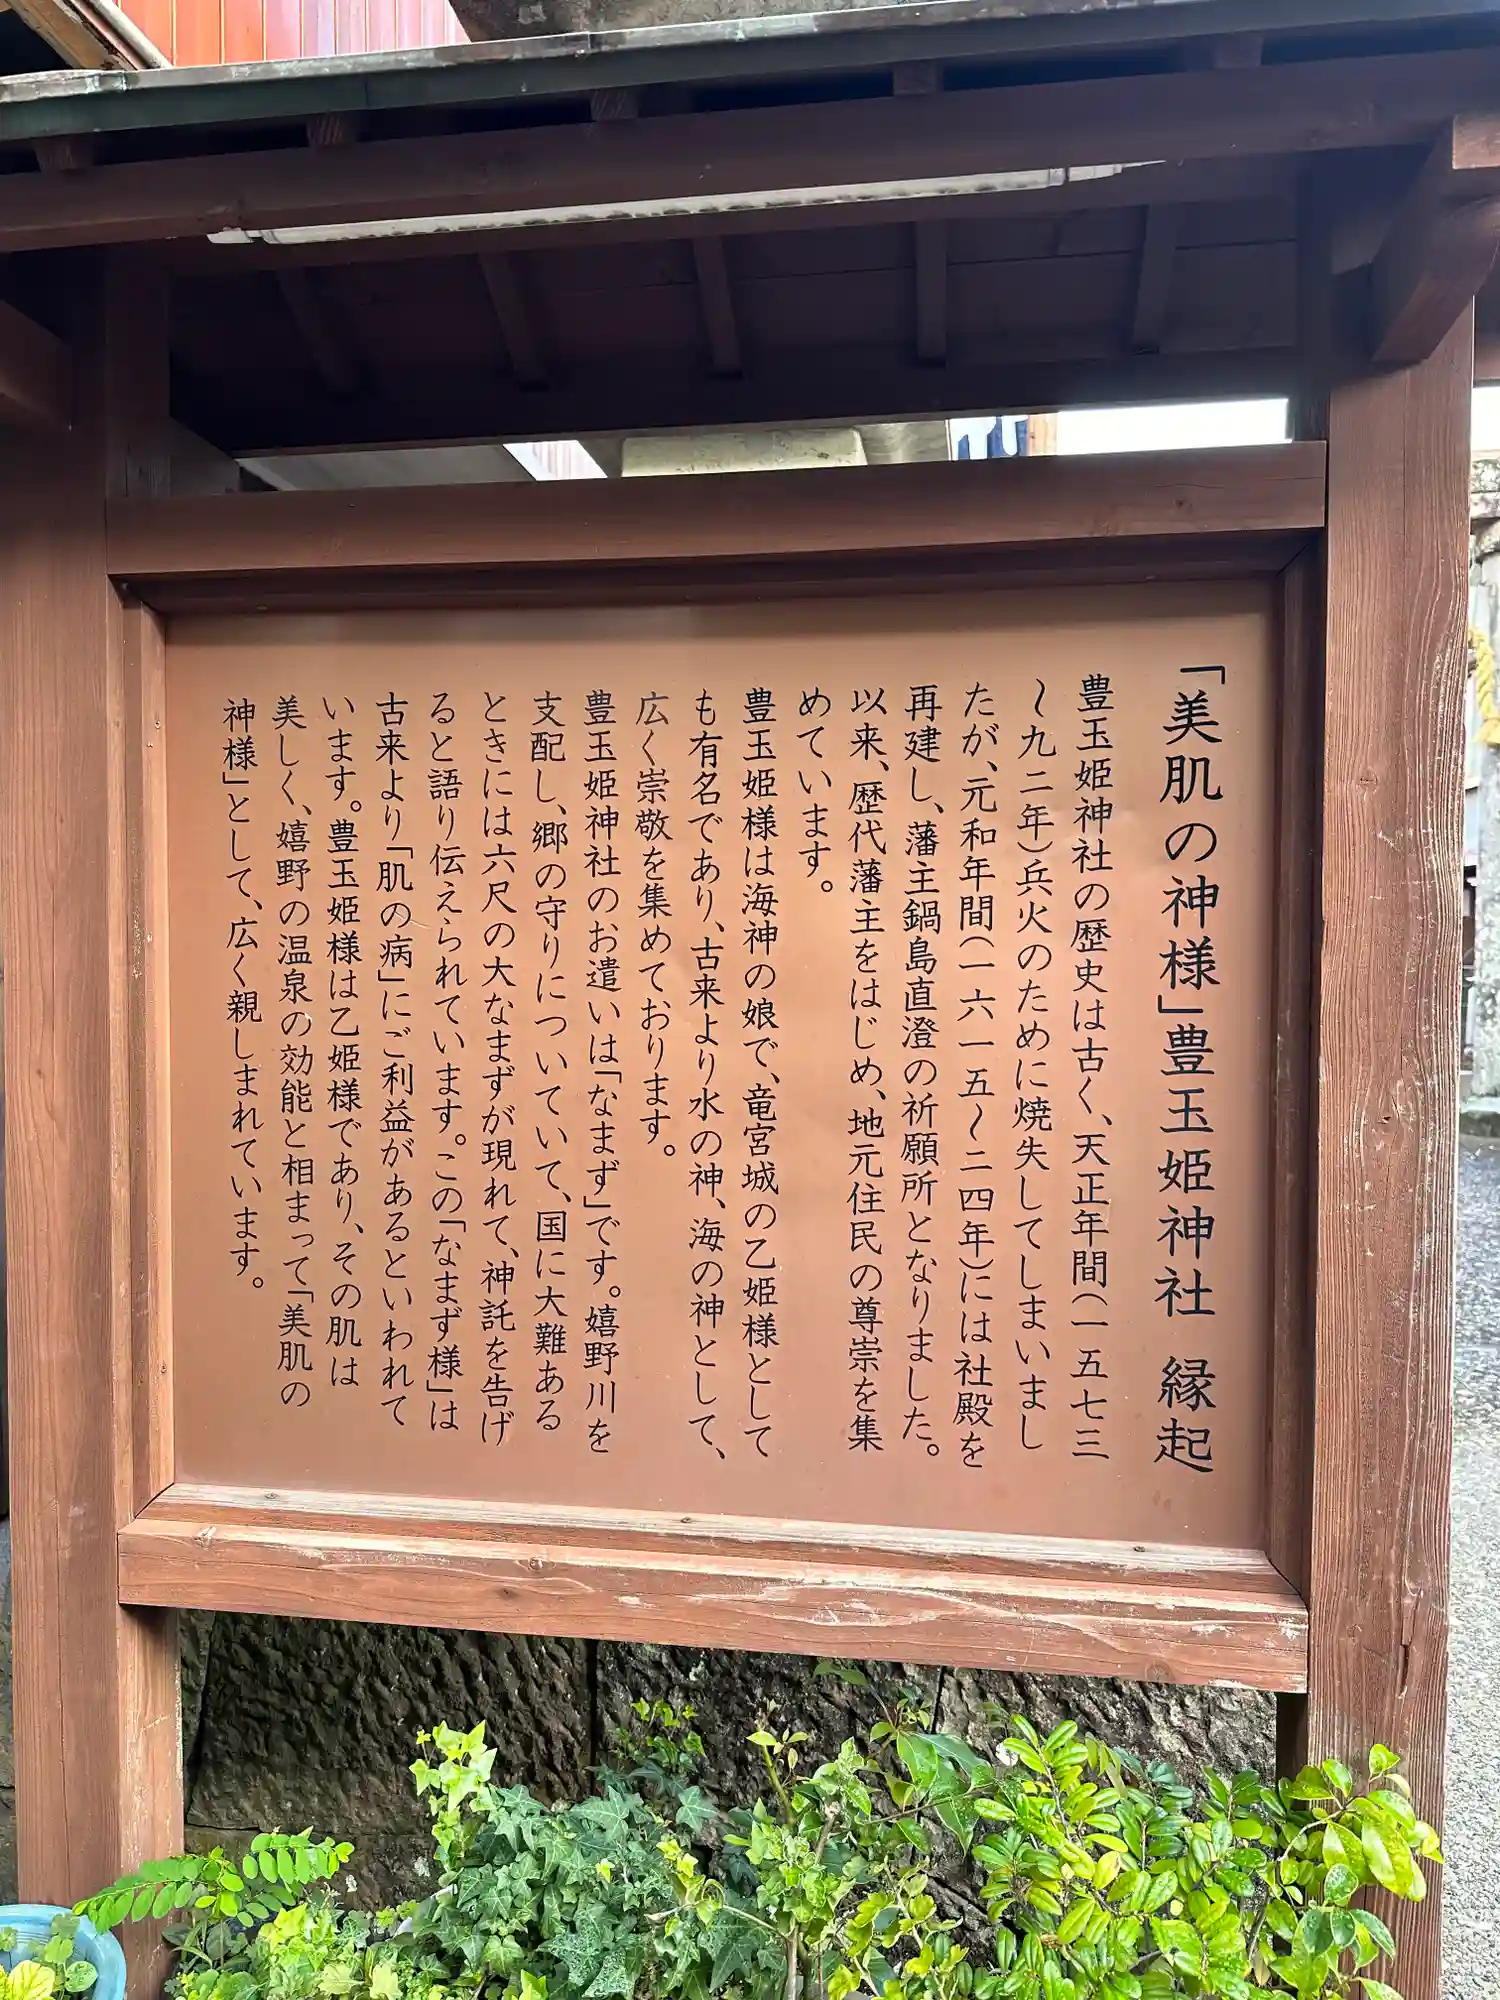 「美肌の神様」豊玉姫神社 縁起
豊玉姫神社の歴史は古く、天正年間(一五七三
〜九二年)兵火のために焼失してしまいまし
たが、元和年間(一六一五〜二四年)には社殿を
再建し、藩主鍋島直澄の祈願所となりました。
以来、歴代藩主をはじめ、地元住民の尊崇を集
めています。
豊玉姫様は海神の娘で、竜宮城の乙姫様として
も有名であり、古来より水の神、海の神として、
広く崇敬を集めております。
豊玉姫神社のお遣いは「なまず」です。嬉野川を
支配し、郷の守りについていて、国に大難ある
ときには六尺の大なまずが現れて、神託を告げ
ると語り伝えられています。この「なまず様」は
古来より「肌の病」にご利益があるといわれて
います。豊玉姫様は乙姫様であり、その肌は
美しく、嬉野の温泉の効能と相まって「美肌の
神様」として、広く親しまれています。